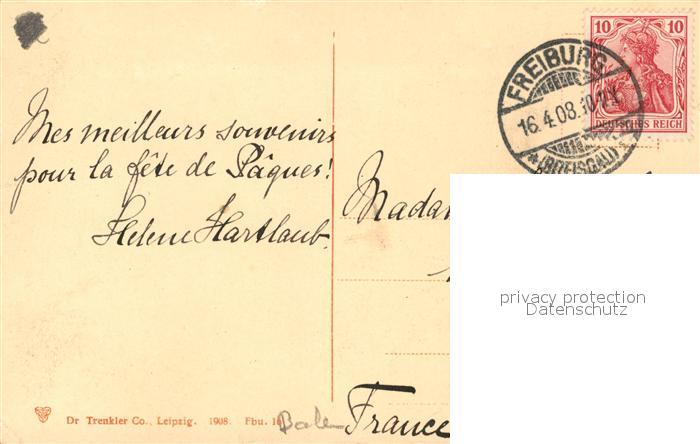 10 10
DEUTSCHES REICH
FREIBURG
16.4.08.10-11V.
* (BREISGAU)
Mes meilleurs souvenirs
pour la fête de Pâques!
Helene Hartlaub.
Madam
privacy protection
Datenschutz
France
Dr Trenkler Co., Leipzig. 1908. Fbu. 16
Baden